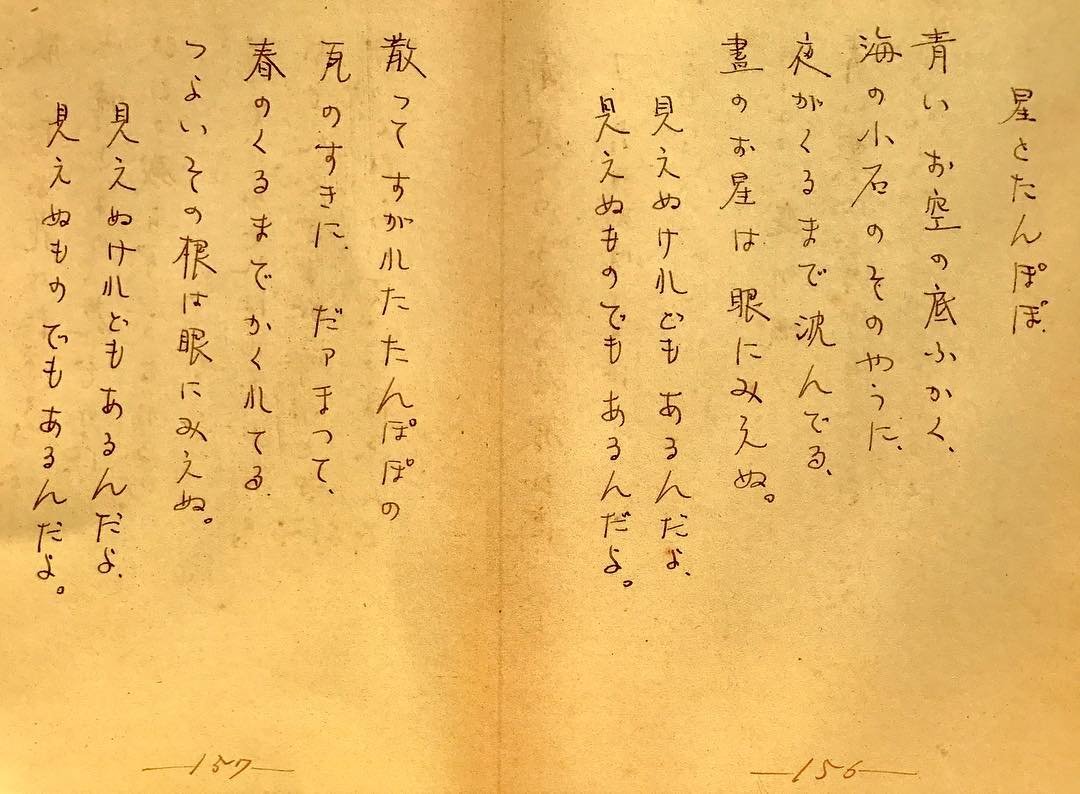 星とたんぽぽ、
青いお空の底ふかく、
海の小石のそのやうに、
夜がくるまで沈んでる、
晝のお星は眼にみえぬ。
見えぬけれどもあるんだよ、
見えぬものでもあるんだよ。
—156—
散つてすがれたたんぽぽの
瓦のすきに、だァまつて、
春のくるまでかくれてる、
つよいその根は眼にみえぬ。
見えぬけれどもあるんだよ、
見えぬものでもあるんだよ。
—157—